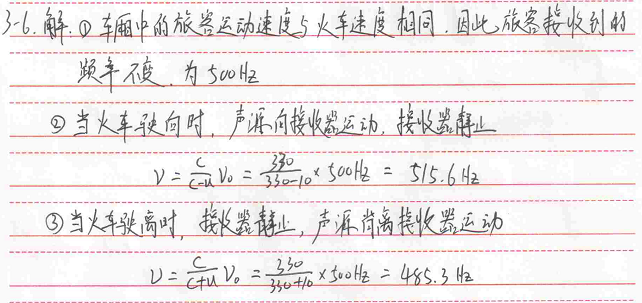 3-6. 解: ① 车厢中的旅客运动速度与火车速度相同. 因此旅客接收到的
频率不变, 为500Hz
② 当火车驶向时, 声源向接收器运动, 接收器静止
ν = c/(c-u) ν₀ = 330/(330-10) × 500Hz = 515.6 Hz
③ 当火车驶离时, 接收器静止, 声源背离接收器运动
ν = c/(c+u) ν₀ = 330/(330+10) × 500Hz = 485.3 Hz